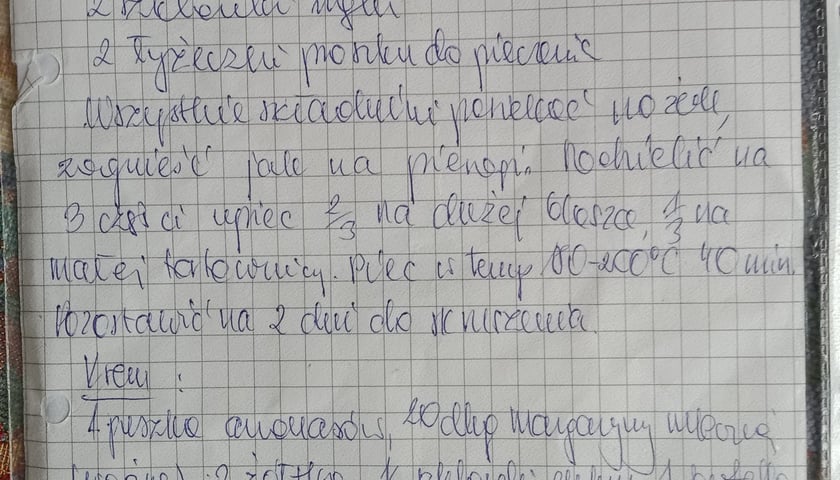 2 szklanki mąki
2 łyżeczki proszku do pieczenia
Wszystkie składniki posiekać nożem,
zagnieść jak na pierogi. Podzielić na
3 części upiec 2/3 na dużej blaszce, 1/3 na
małej tortownicy. Piec w temp 180-200°C 40 min.
Pozostawić na 2 dni do skruszenia.
Krem :
1 puszka ananasów, 20 dkg margaryny mleczną
2 żółtka 1